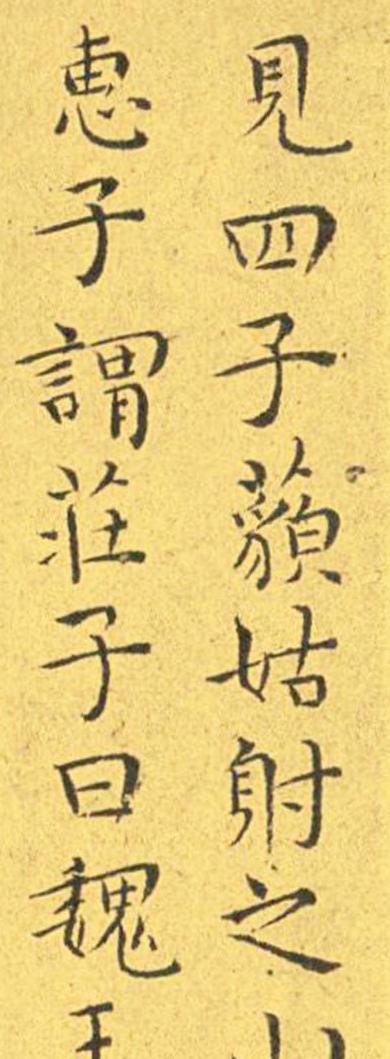 見四子藐姑射之山
惠子謂莊子曰魏王